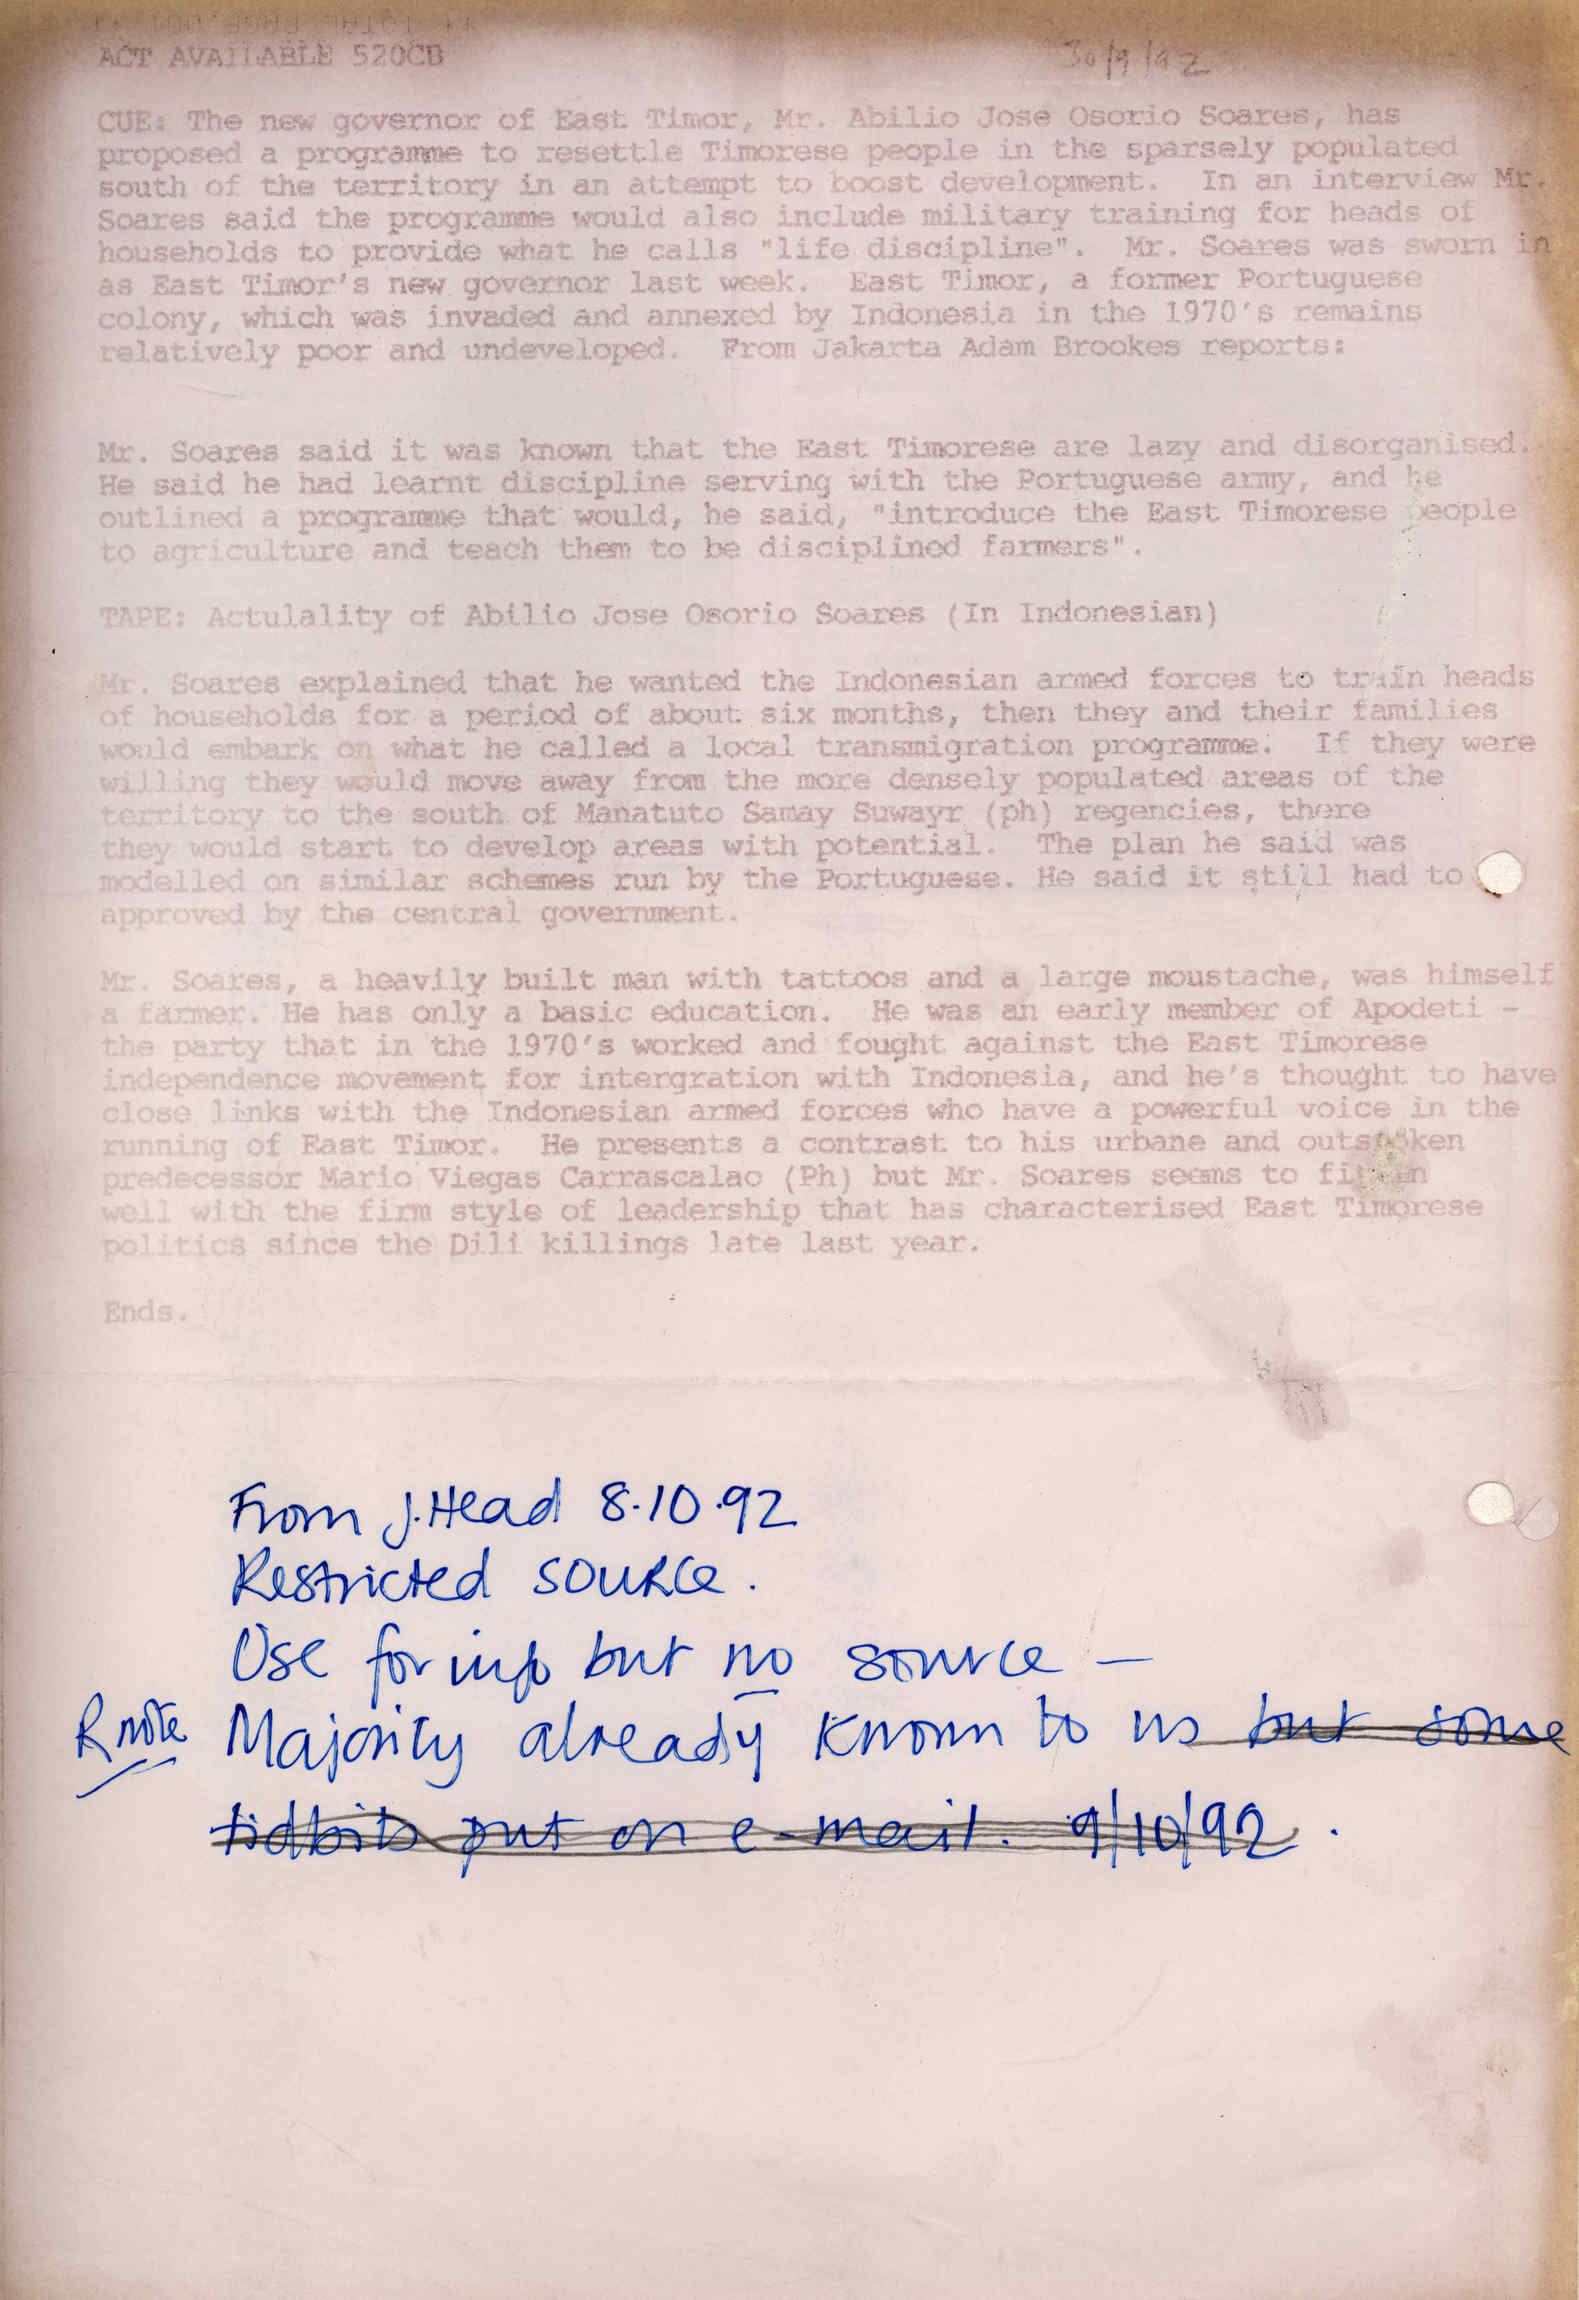 ACT AVAILABLE 520CB
30/9/92
CUE: The new governor of East Timor, Mr. Abilio Jose Osorio Soares, has
proposed a programme to resettle Timorese people in the sparsely populated
south of the territory in an attempt to boost development. In an interview Mr.
Soares said the programme would also include military training for heads of
households to provide what he calls "life discipline". Mr. Soares was sworn in
as East Timor's new governor last week. East Timor, a former Portuguese
colony, which was invaded and annexed by Indonesia in the 1970's remains
relatively poor and undeveloped. From Jakarta Adam Brookes reports:
Mr. Soares said it was known that the East Timorese are lazy and disorganised.
He said he had learnt discipline serving with the Portuguese army, and he
outlined a programme that would, he said, "introduce the East Timorese people
to agriculture and teach them to be disciplined farmers".
TAPE: Actulality of Abilio Jose Osorio Soares (In Indonesian)
Mr. Soares explained that he wanted the Indonesian armed forces to train heads
of households for a period of about six months, then they and their families
would embark on what he called a local transmigration programme. If they were
willing they would move away from the more densely populated areas of the
territory to the south of Manatuto Samay Suwayr (ph) regencies, there
they would start to develop areas with potential. The plan he said was
modelled on similar schemes run by the Portuguese. He said it still had to
approved by the central government.
Mr. Soares, a heavily built man with tattoos and a large moustache, was himself
a farmer. He has only a basic education. He was an early member of Apodeti -
the party that in the 1970's worked and fought against the East Timorese
independence movement for intergration with Indonesia, and he's thought to have
close links with the Indonesian armed forces who have a powerful voice in the
running of East Timor. He presents a contrast to his urbane and outspoken
predecessor Mario Viegas Carrascalao (Ph) but Mr. Soares seems to fit in
well with the firm style of leadership that has characterised East Timorese
politics since the Dili killings late last year.
Ends.
From J. Head 8.10.92
Restricted source.
Use for info but no source –
R note Majority already known to us but some
tidbits put on e-mail. 9/10/92.